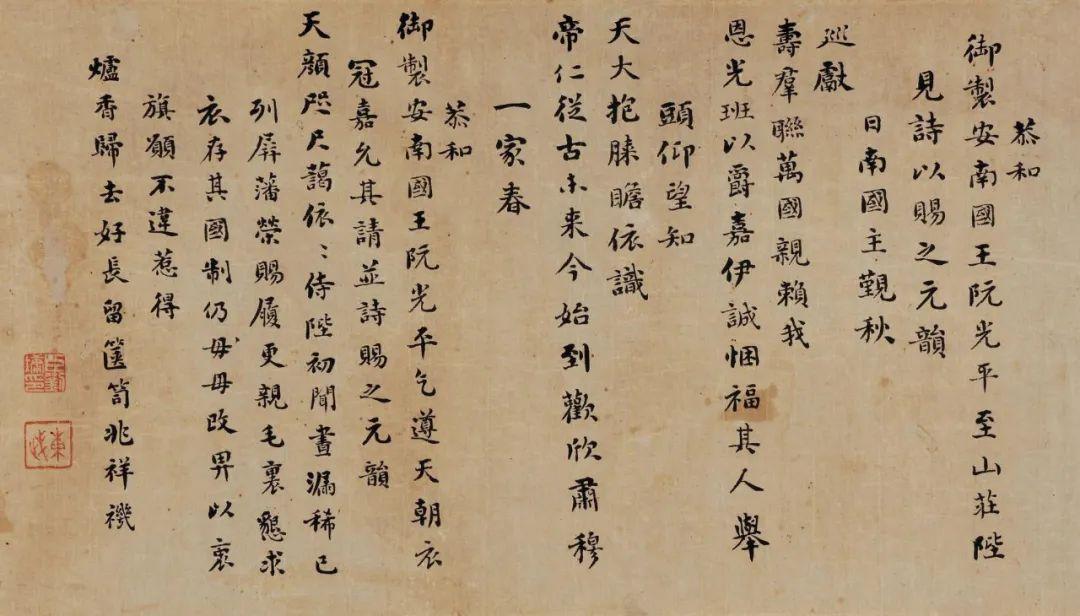 恭和
御製安南國王阮光平至山莊陛
見詩以賜之元韻
日南國主覲秋
巡獻
壽羣聯萬國親賴我
恩光班以爵嘉伊誠悃福其人舉
頭仰望知
天大抱膝瞻依識
帝仁從古未来今始到歡欣肅穆
一家春
恭和
御製安南國王阮光平乞遵天朝衣
冠嘉允其請並詩賜之元韻
天顏咫尺藹依〻侍陛初聞晝漏稀已
列屏藩榮賜履更親毛裏懇求
衣存其國制仍毋毋改畀以衷
旂願不違惹得
爐香歸去好長留篋笥兆祥禨